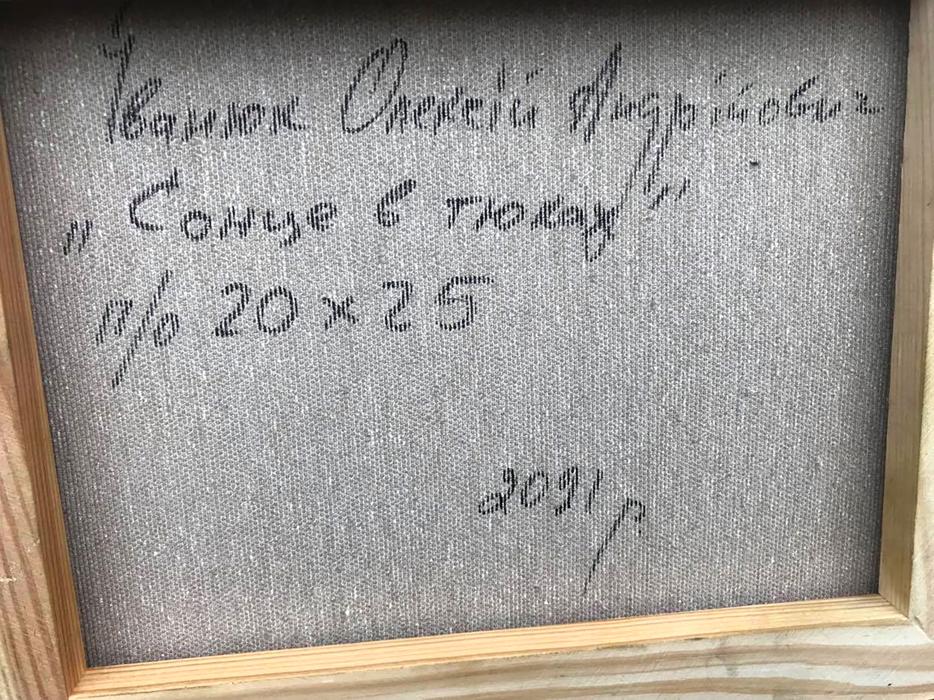 Іванюк Олексій Андрійович
„Сонце в
п/о 20 x 25
2021 р